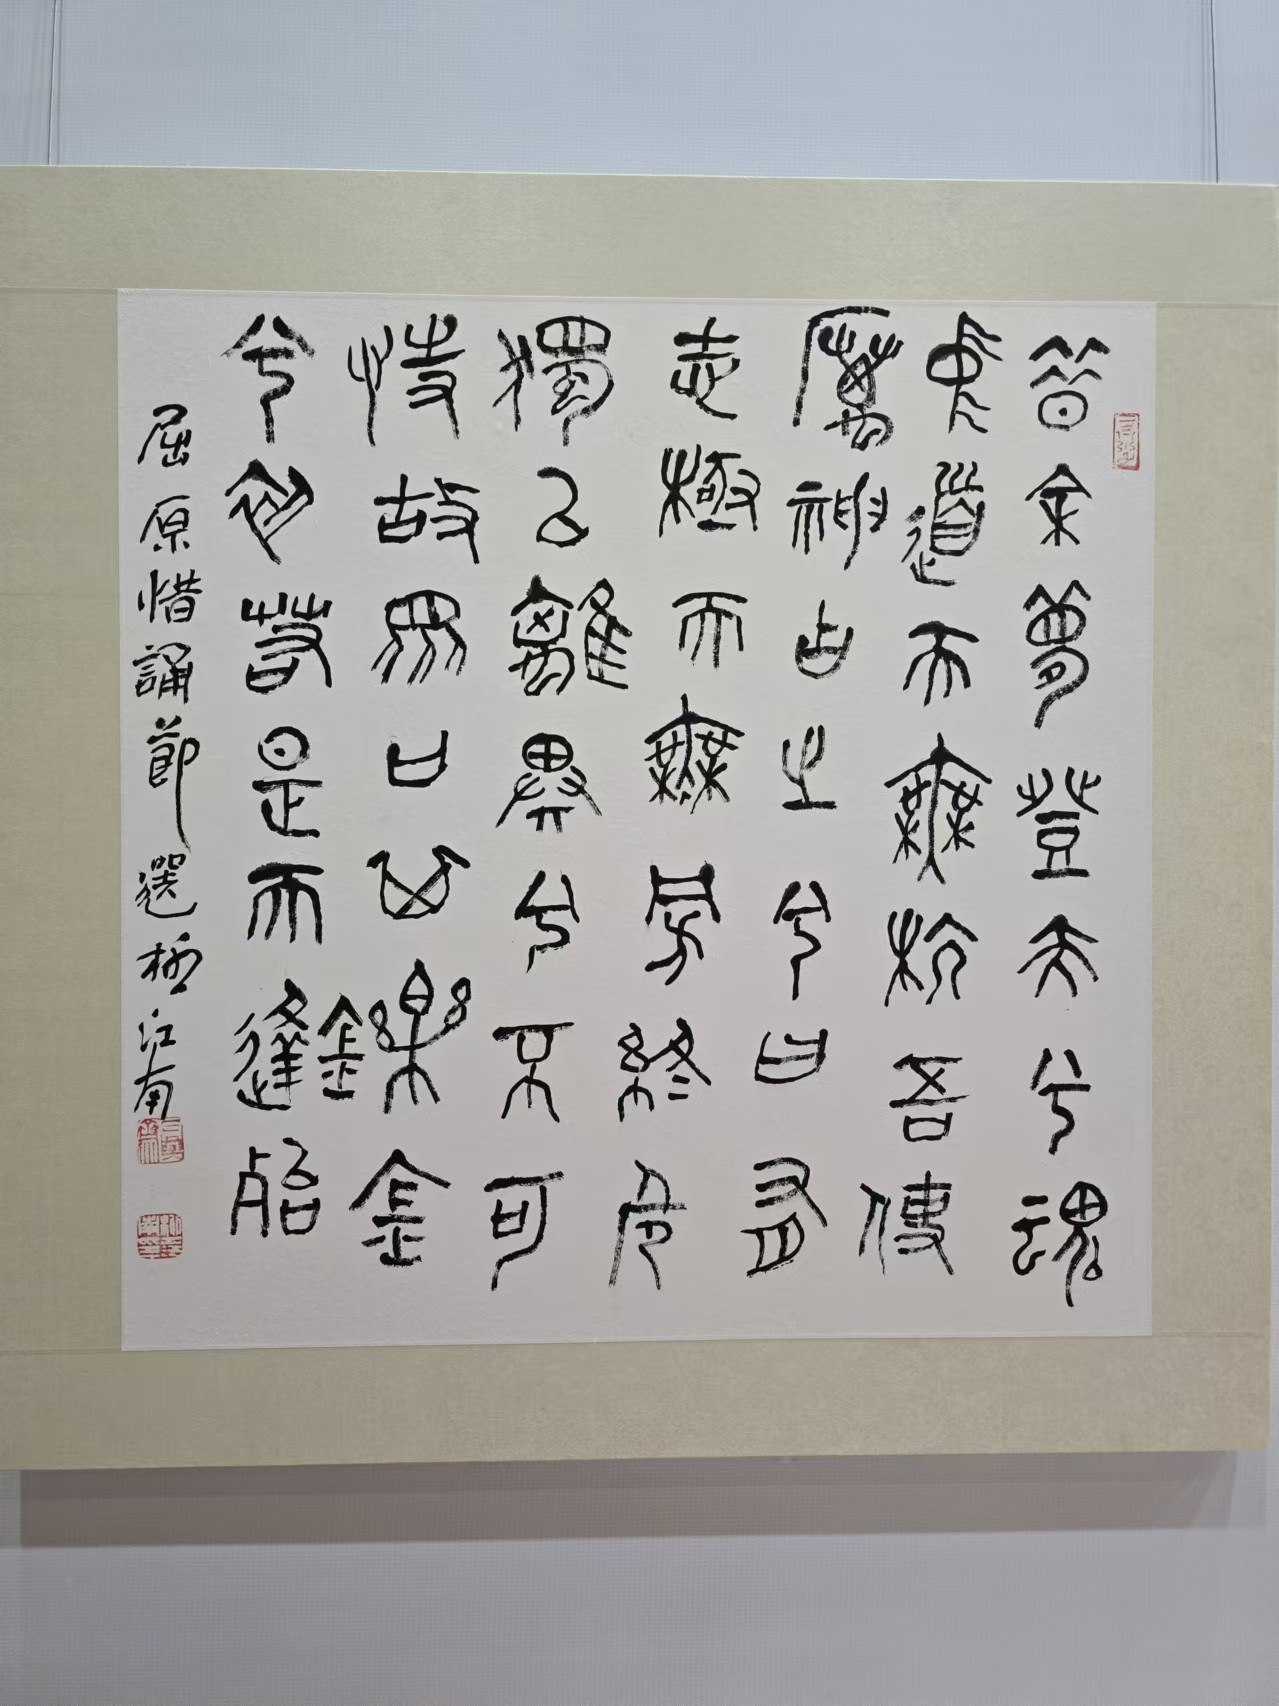 昔余夢登天兮魂
中道而無杭吾使
厲神占之兮曰有
志極而無旁終危
獨以離異兮不可
恃故眾口其鑠金
兮初若是而逢殆
屈原惜誦節選江南